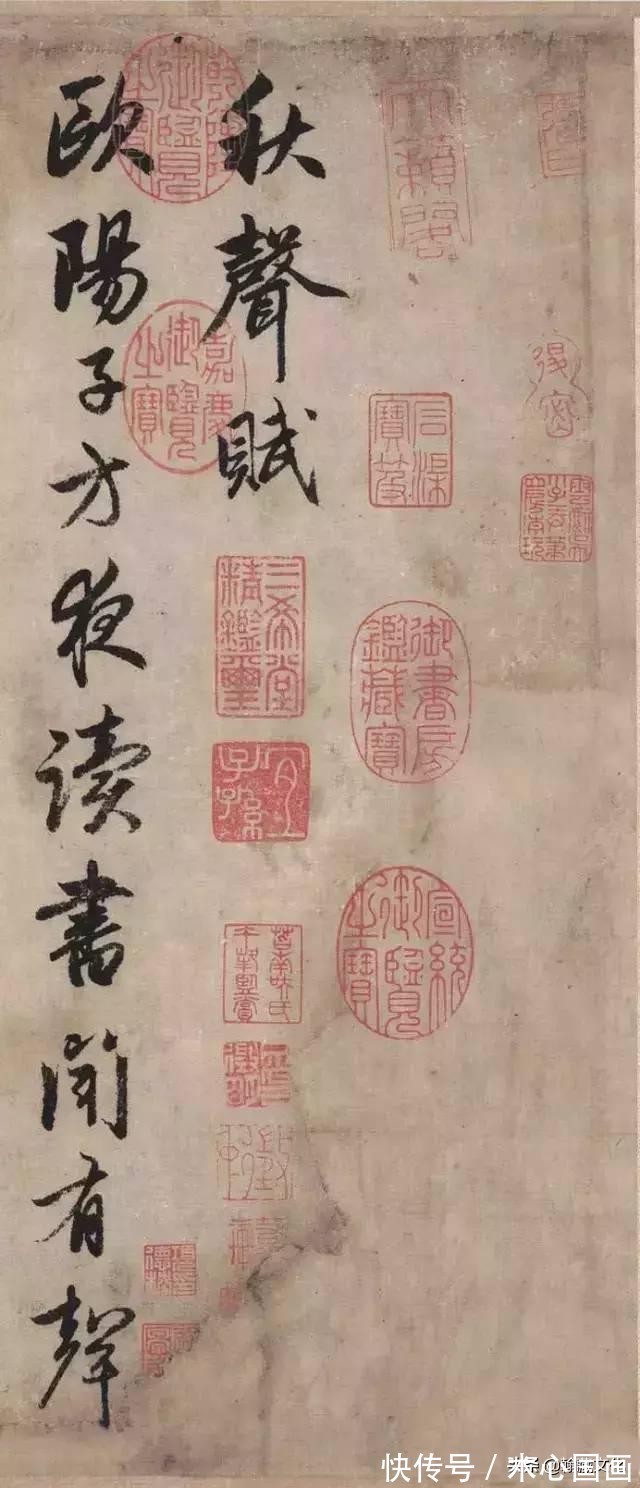 天籟閣
石渠寶笈
御書房鑑藏寶
宣統御覽之寶
秋聲賦
三希堂精鑑璽
宜子孫
乾隆御覽之寶
嘉慶御覽之寶
歐陽子方夜讀書聞有聲
快传号